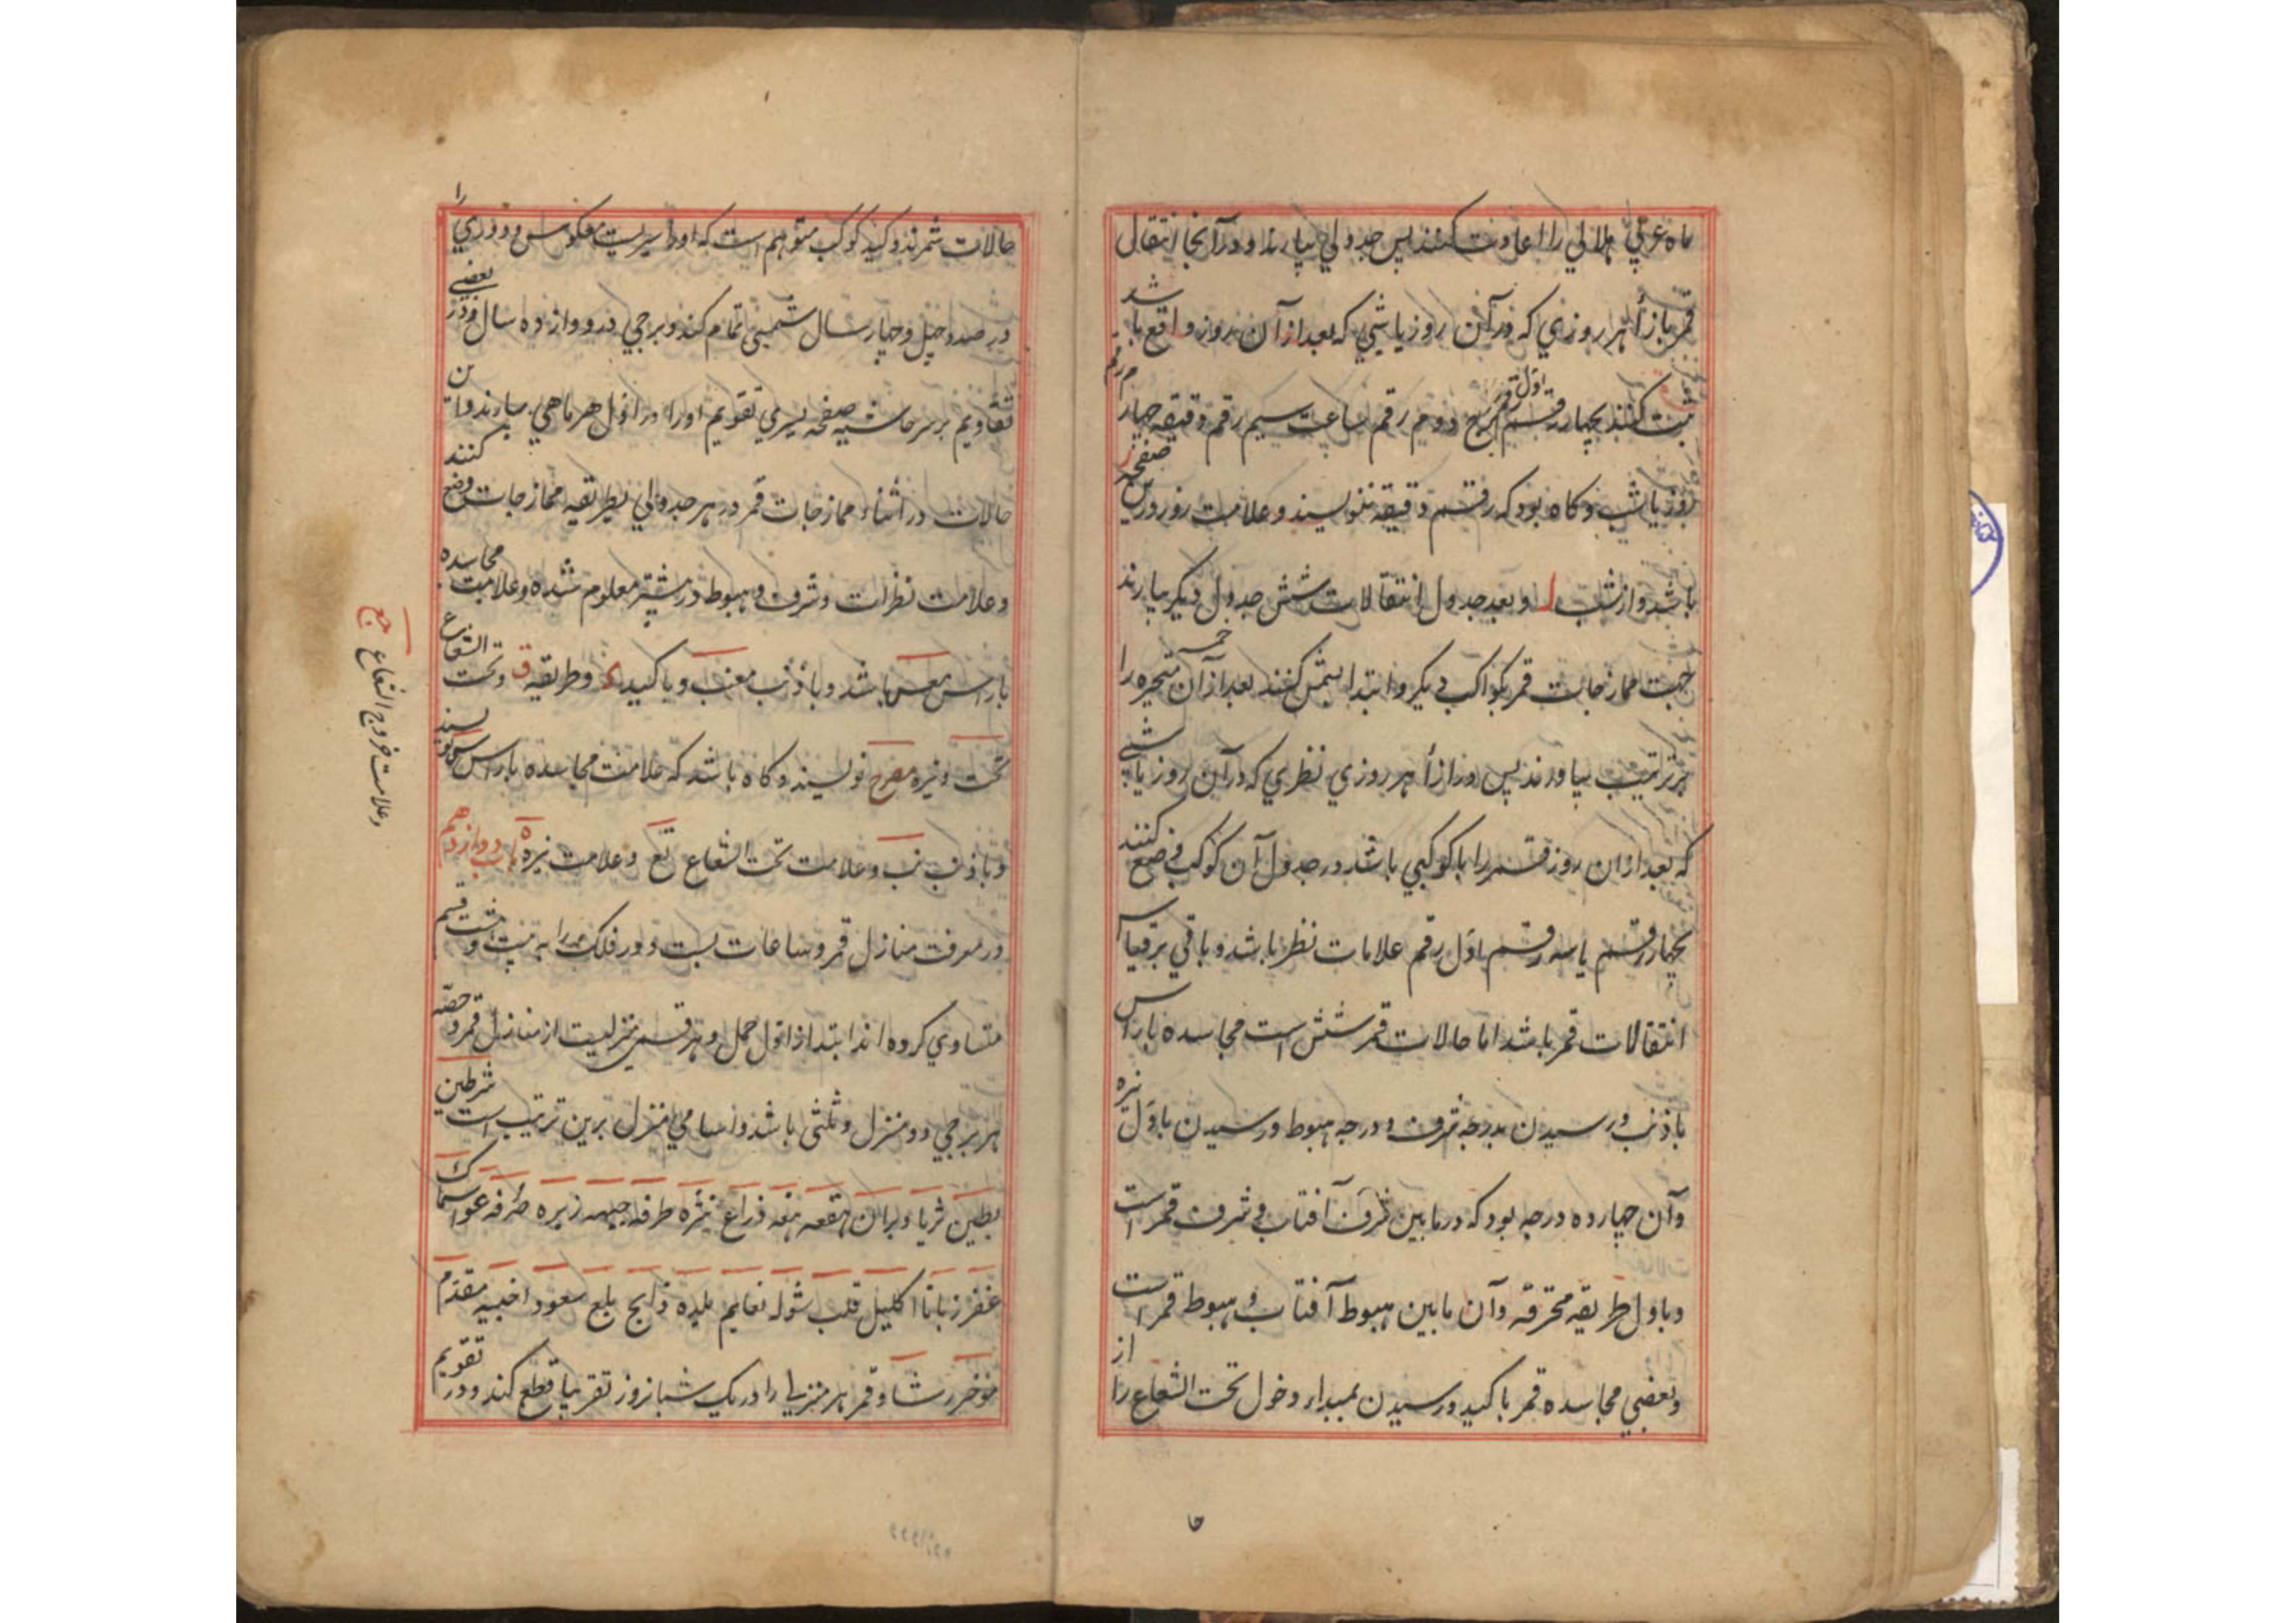 ماه عربي هلالي را اعادت كنند پس جدولي بيارند و در آنجا انتقال
قمر بازأ هر روزي كه در آن روز يا شبي كه بعد از آن روز واقع باشد
ثبت كنند بچهار رقم اول رقم برج دوم رقم ساعت سيم رقم دقيقه چهارم رقم
روز يا شب و كاه بود كه رقم دقيقه ننويسند و علامت روز درين صفحه ز
باشد و از شب ل و بعد جدول انتقالات شش جدول ديكر بيارند
جهت ممازجات قمر بكواكب ديكر و ابتدا بشمس كنند بعد از آن خمسه متحيره را
بر ترتيب بياورند پس در ازأ هر روزي نظري كه در آن روز يا شبي
كه بعد از ان روز قمر را با كوكبي باشد در جدول آن كوكب وضع كنند
بچهار رقم يا سه رقم اول رقم علامات نظر باشد و باقي بر قياس
انتقالات قمر باشد اما حالات قمر شش است مجاسده با راس
با ذنب و رسيدن بدرجه شرف و درجه هبوط و رسيدن باول نيره
وآن چهارده درجه بود كه در مابين شرف آفتاب و شرف قمر است
و باول طريقه محترقه وآن مابين هبوط آفتاب و هبوط قمر است
و بعضي مجاسده قمر با كيد و رسيدن بمبداء دخول تحت الشعاع را از
حا
حالات شمرند و كيد كوكب متوهم است كه او را سيريست معكوس و دوري را
در صد و چهل و چهار سال شمسي تمام كند و برجي در دوازده سال و در بعضي
تقاويم بر سر حاشيه صفحه يسري تقويم او را در اول هر ماهي بيارند و اين
حالات در أثناء ممازجات قمر در هر جدولي بطريقه ممازجات وضع كنند
و علامت نظرات و شرف و هبوط در پيشتر معلوم شده و علامت مجاسده
با راس معس باشد و با ذنب معنب و با كيد ى و طريقه ق و تحت الشعاع
تحت و نيره مصرح نويسند و كاه باشد كه علامت مجاسده با راس س نويسند
و با ذنب نب و علامت تحت الشعاع تع و علامت نيره ه باب دوازدهم
در معرفت منازل قمر و ساعات بست دور فلك را به بيست و هشت قسم
متساوي كرده اند ابتدا از اول حمل و هر قسمي منزليست از منازل قمر و حصه
هر برجي دو منزل و ثلثي باشد و اسامي منزل برين ترتيب است شرطين
بطين ثريا دبران هقعه هنعه ذراع نثره طرفه جبهه زبره صرفه عوا سماك
غفر زبانا اكليل قلب شوله نعايم بلده ذابح بلع سعود اخبيه مقدم
مؤخر رشا و قمر هر منزلي را در يك شبانروز تقريبا قطع كند و در تقويم
وعلامت خروج الشعاع جع